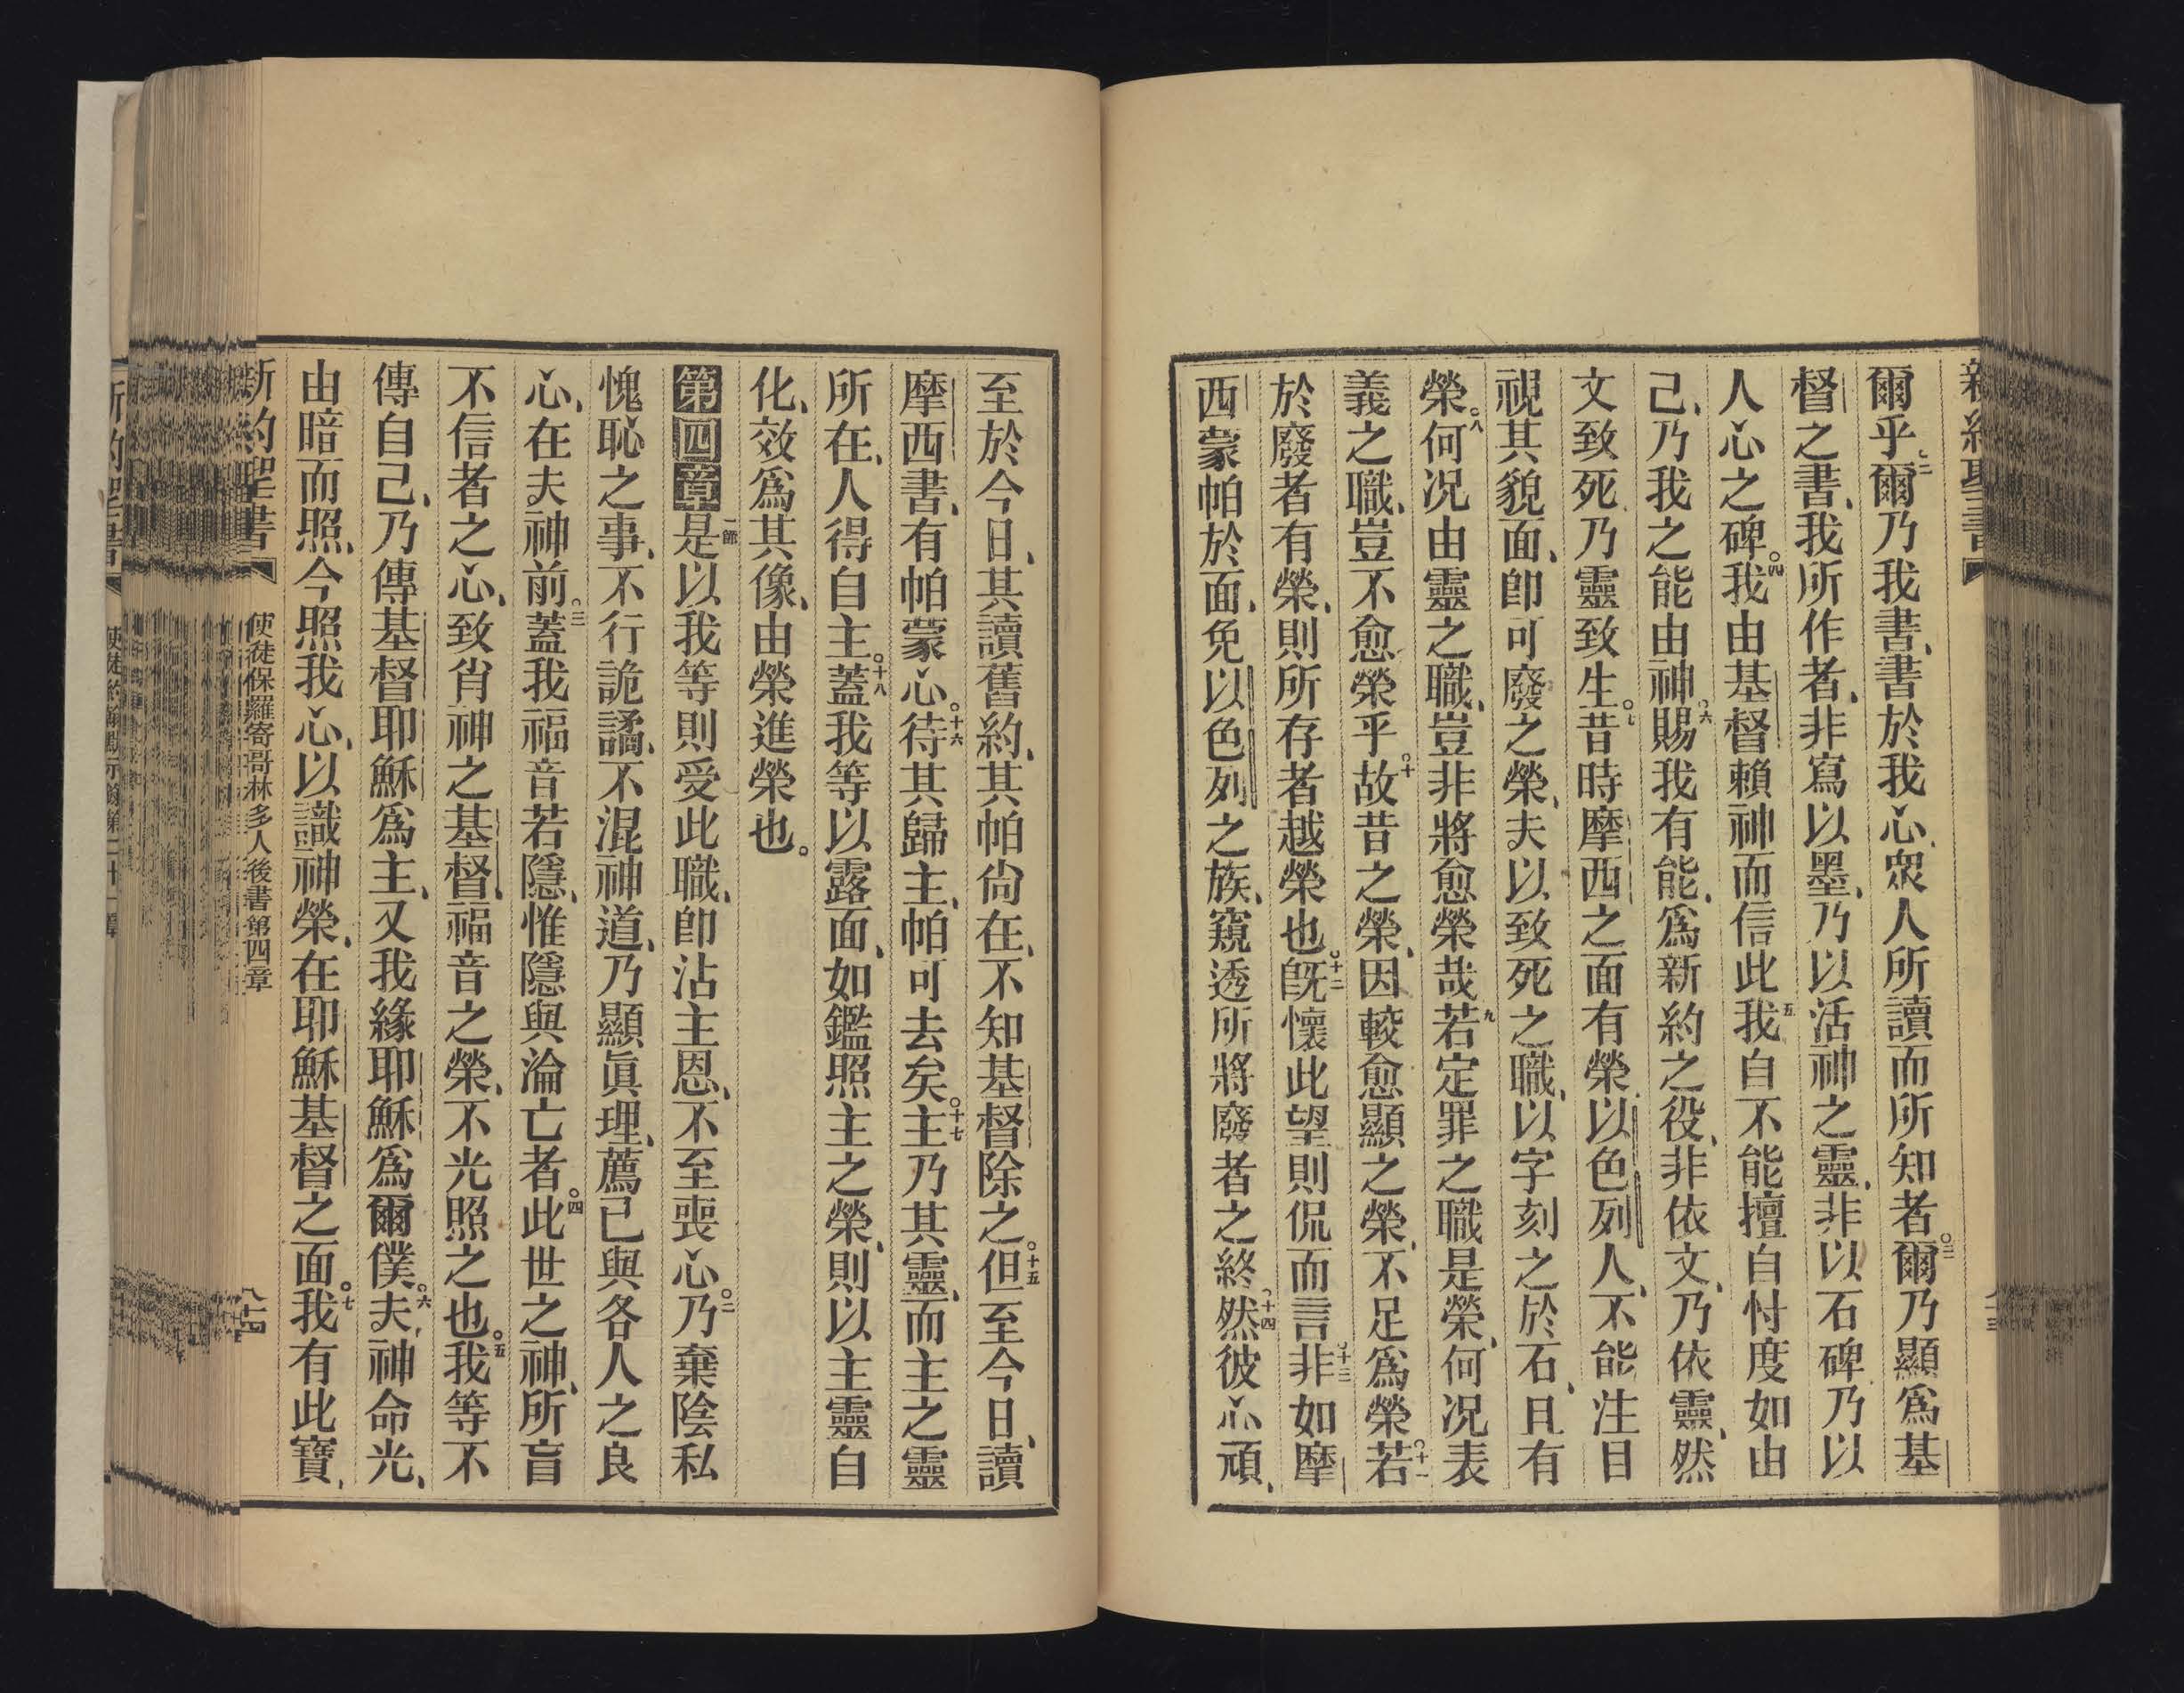 新約聖書
爾乎、二爾乃我書、書於我心、眾人所讀而所知者。三爾乃顯爲基
督之書、我所作者、非寫以墨、乃以活神之靈、非以石碑乃以
人心之碑。四我由基督賴神而信此五我自不能擅自忖度如由
己、乃我之能由神。六賜我有能、爲新約之役、非依文、乃依靈、然
文致死乃靈致生。七昔時摩西之面有榮、以色列人、不能注目
視其貌面、卽可廢之榮、夫以致死之職、以字刻之於石、且有
榮。八何况由靈之職、豈非將愈榮哉九若定罪之職是榮、何况表
義之職、豈不愈榮乎。十故昔之榮、因較愈顯之榮、不足爲榮。十一若
於廢者有榮、則所存者越榮也。十二旣懷此望則侃而言。十三非如摩
西蒙帕於面、免以色列之族、窺透所將廢者之終。十四然彼心頑、
至於今日、其讀舊約、其帕尙在、不知基督除之。十五但至今日、讀
摩西書、有帕蒙心。十六待其歸主、帕可去矣。十七主乃其靈、而主之靈
所在、人得自主。十八蓋我等以露面、如鑑照主之榮、則以主靈自
化、效爲其像、由榮進榮也。
第四章一節是以我等則受此職、卽沾主恩、不至喪心。二乃棄陰私
愧恥之事、不行詭譎、不混神道、乃顯眞理、薦己與各人之良
心、在夫神前。三蓋我福音若隱、惟隱與淪亡者。四此世之神、所盲
不信者之心、致肖神之基督、福音之榮、不光照之也。五我等不
傳自己、乃傳基督耶穌爲主、又我緣耶穌爲爾僕。六夫神命光、
由暗而照、今照我心、以識神榮、在耶穌基督之面。七我有此寶、
新約聖書 使徒保羅寄哥林多人後書第四章 八十四